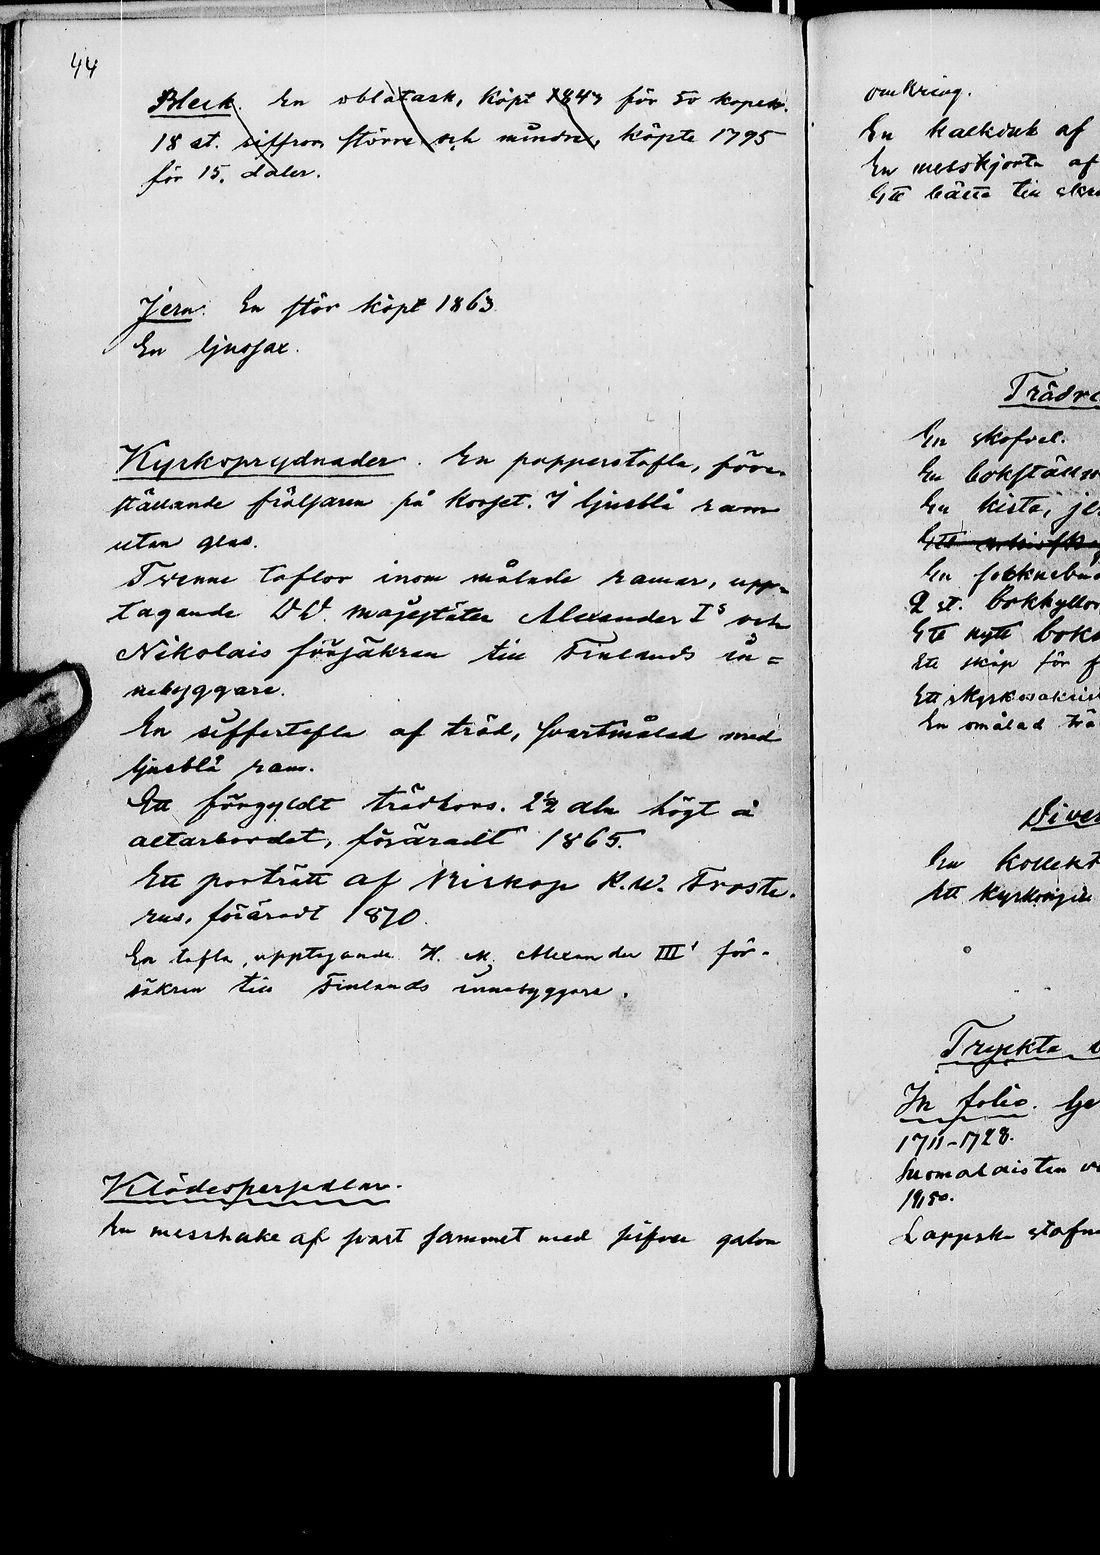 44
Bleck. En oblatask, köpt 1843 för 50 kopek.
18 st. siffror större och mindre, köpte 1795
för 15. daler.
Jern. En stör köpt 1863
En ljussax.
Kyrkoprydnader. En papperstafla, före-
ställande frälsaren på korset. I ljusblå ram
utan glas.
Tvenne taflor inom målade ramar, upp-
tagande DD. majestäter Alexander Is och
Nikolais försäkran till Finlands in=
nebyggare.
En siffertafla af träd, svartmålad med
ljusblå ram.
Ett förgyldt trädkors. 2½ aln högt å
altarbordet, föräradt 1865.
Ett porträtt af Biskop R.W. Froste-
rus, föräradt 1870.
En tafla, upptagande H. M. Alexander III' för-
säkran till Finlands innebyggare.
Klädespersedlar.
En messhake af svart sammet med silfver galon
omkring.
En kalkduk af
En messkjorta af
Ett bäcke till
Trädre
En skofvel.
En bokställn
En kista, je
Ett
En
2 st. bokhyllor
Ett nytt boks
Ett skåp för f
Ett
En omålad trä
Diver
En kollekt
Ett
Tryckta
In folio. Ge
1711-1728.
Suomalaisten
1950.
Lappsk stafn